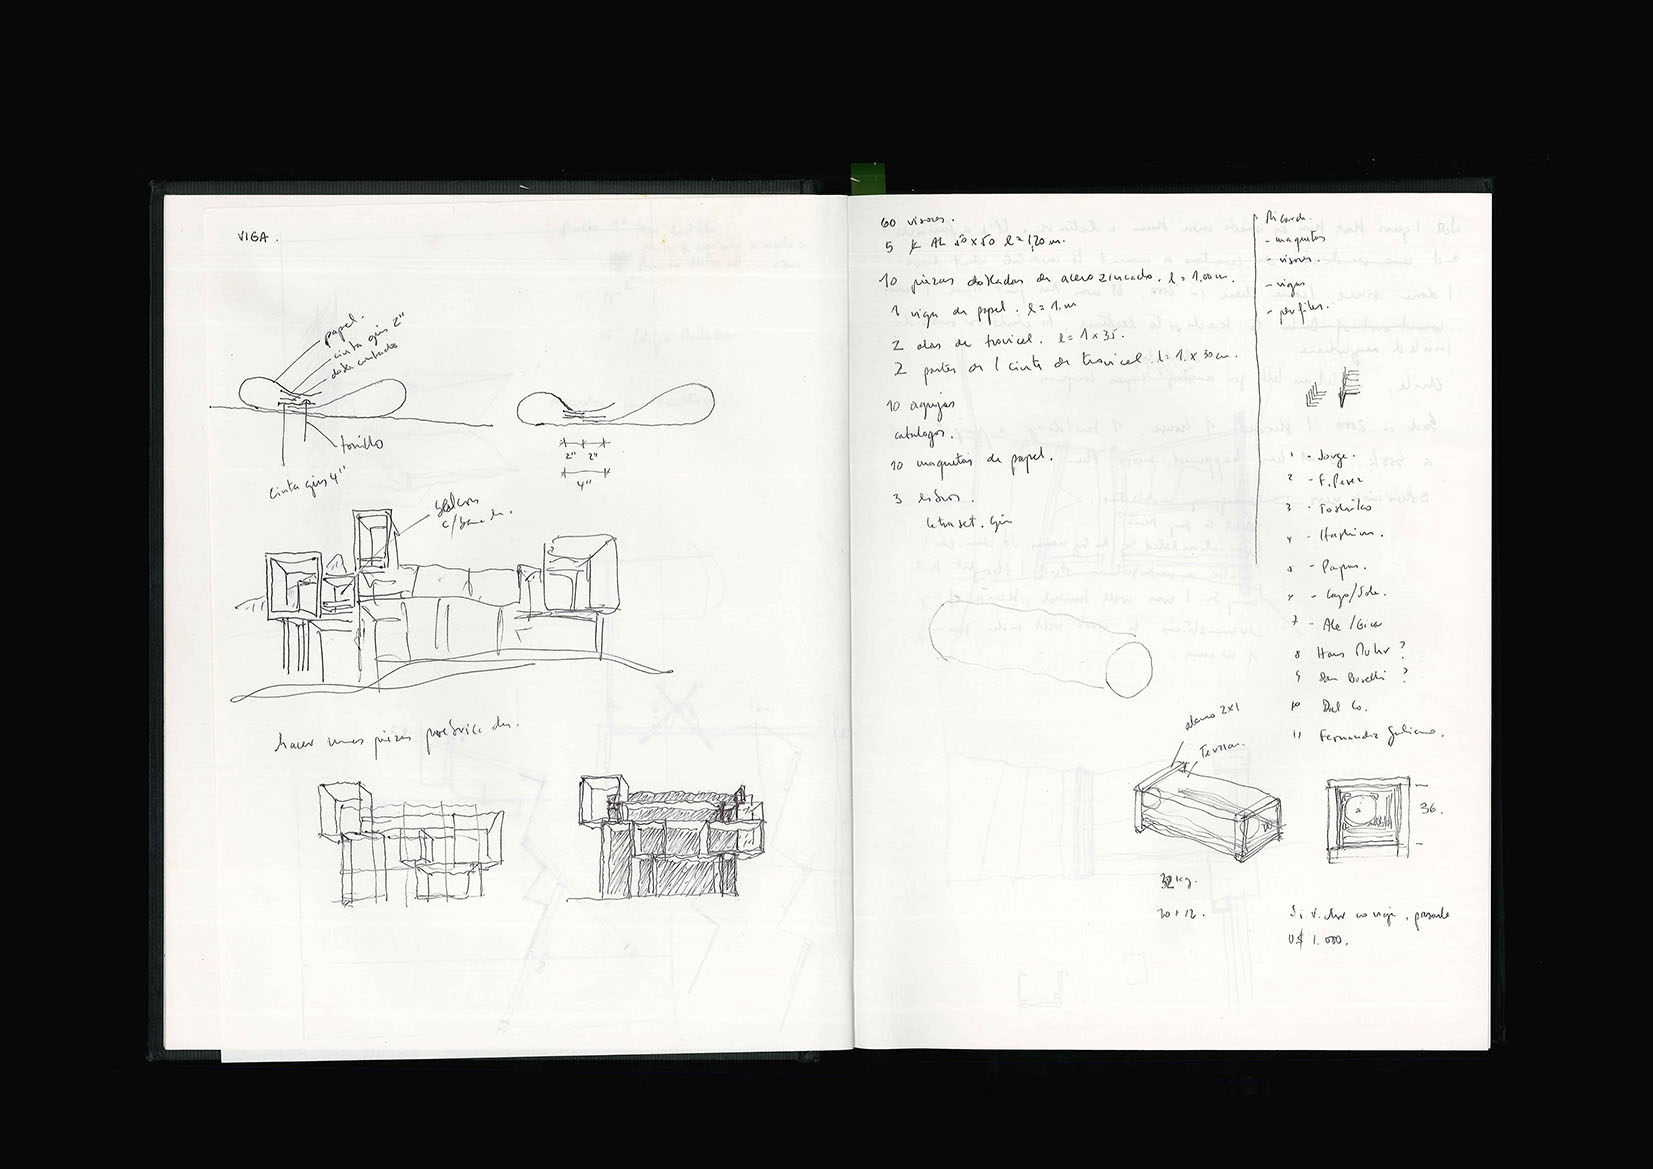 VIGA.
papel.
cinta gris 2"
doble
tornillo
cinta gris 4"
2" 2"
4"
c/
hacer unas piezas
60 visores.
5 AL 50x50 l=1,20 m.
10 piezas dobladas de acero zincado. l=1,00m.
1 viga de papel. l=1,m
2 alas de trovicel. l=1x35.
2 partes de 1 cinta de trovicel. l=1,x30cm.
10 agujas
catalogos.
10 maquetas de papel.
3 libros.
letraset. gris
Ricardo.
- maquetas
- visores.
- vigas
- perfiles.
1 - Jorge.
2 - F. Perez
3 - Toshiko
4 - Hashim.
- Papus.
- /Sole.
7 - Ale /
8 Hans Muhr ?
9 ?
10 Dal Co.
11 Fernandez Galiano.
alamo 2x1
36.
32 kg.
20+12.
Si Victor no viaja, pasarle
U$ 1.000.